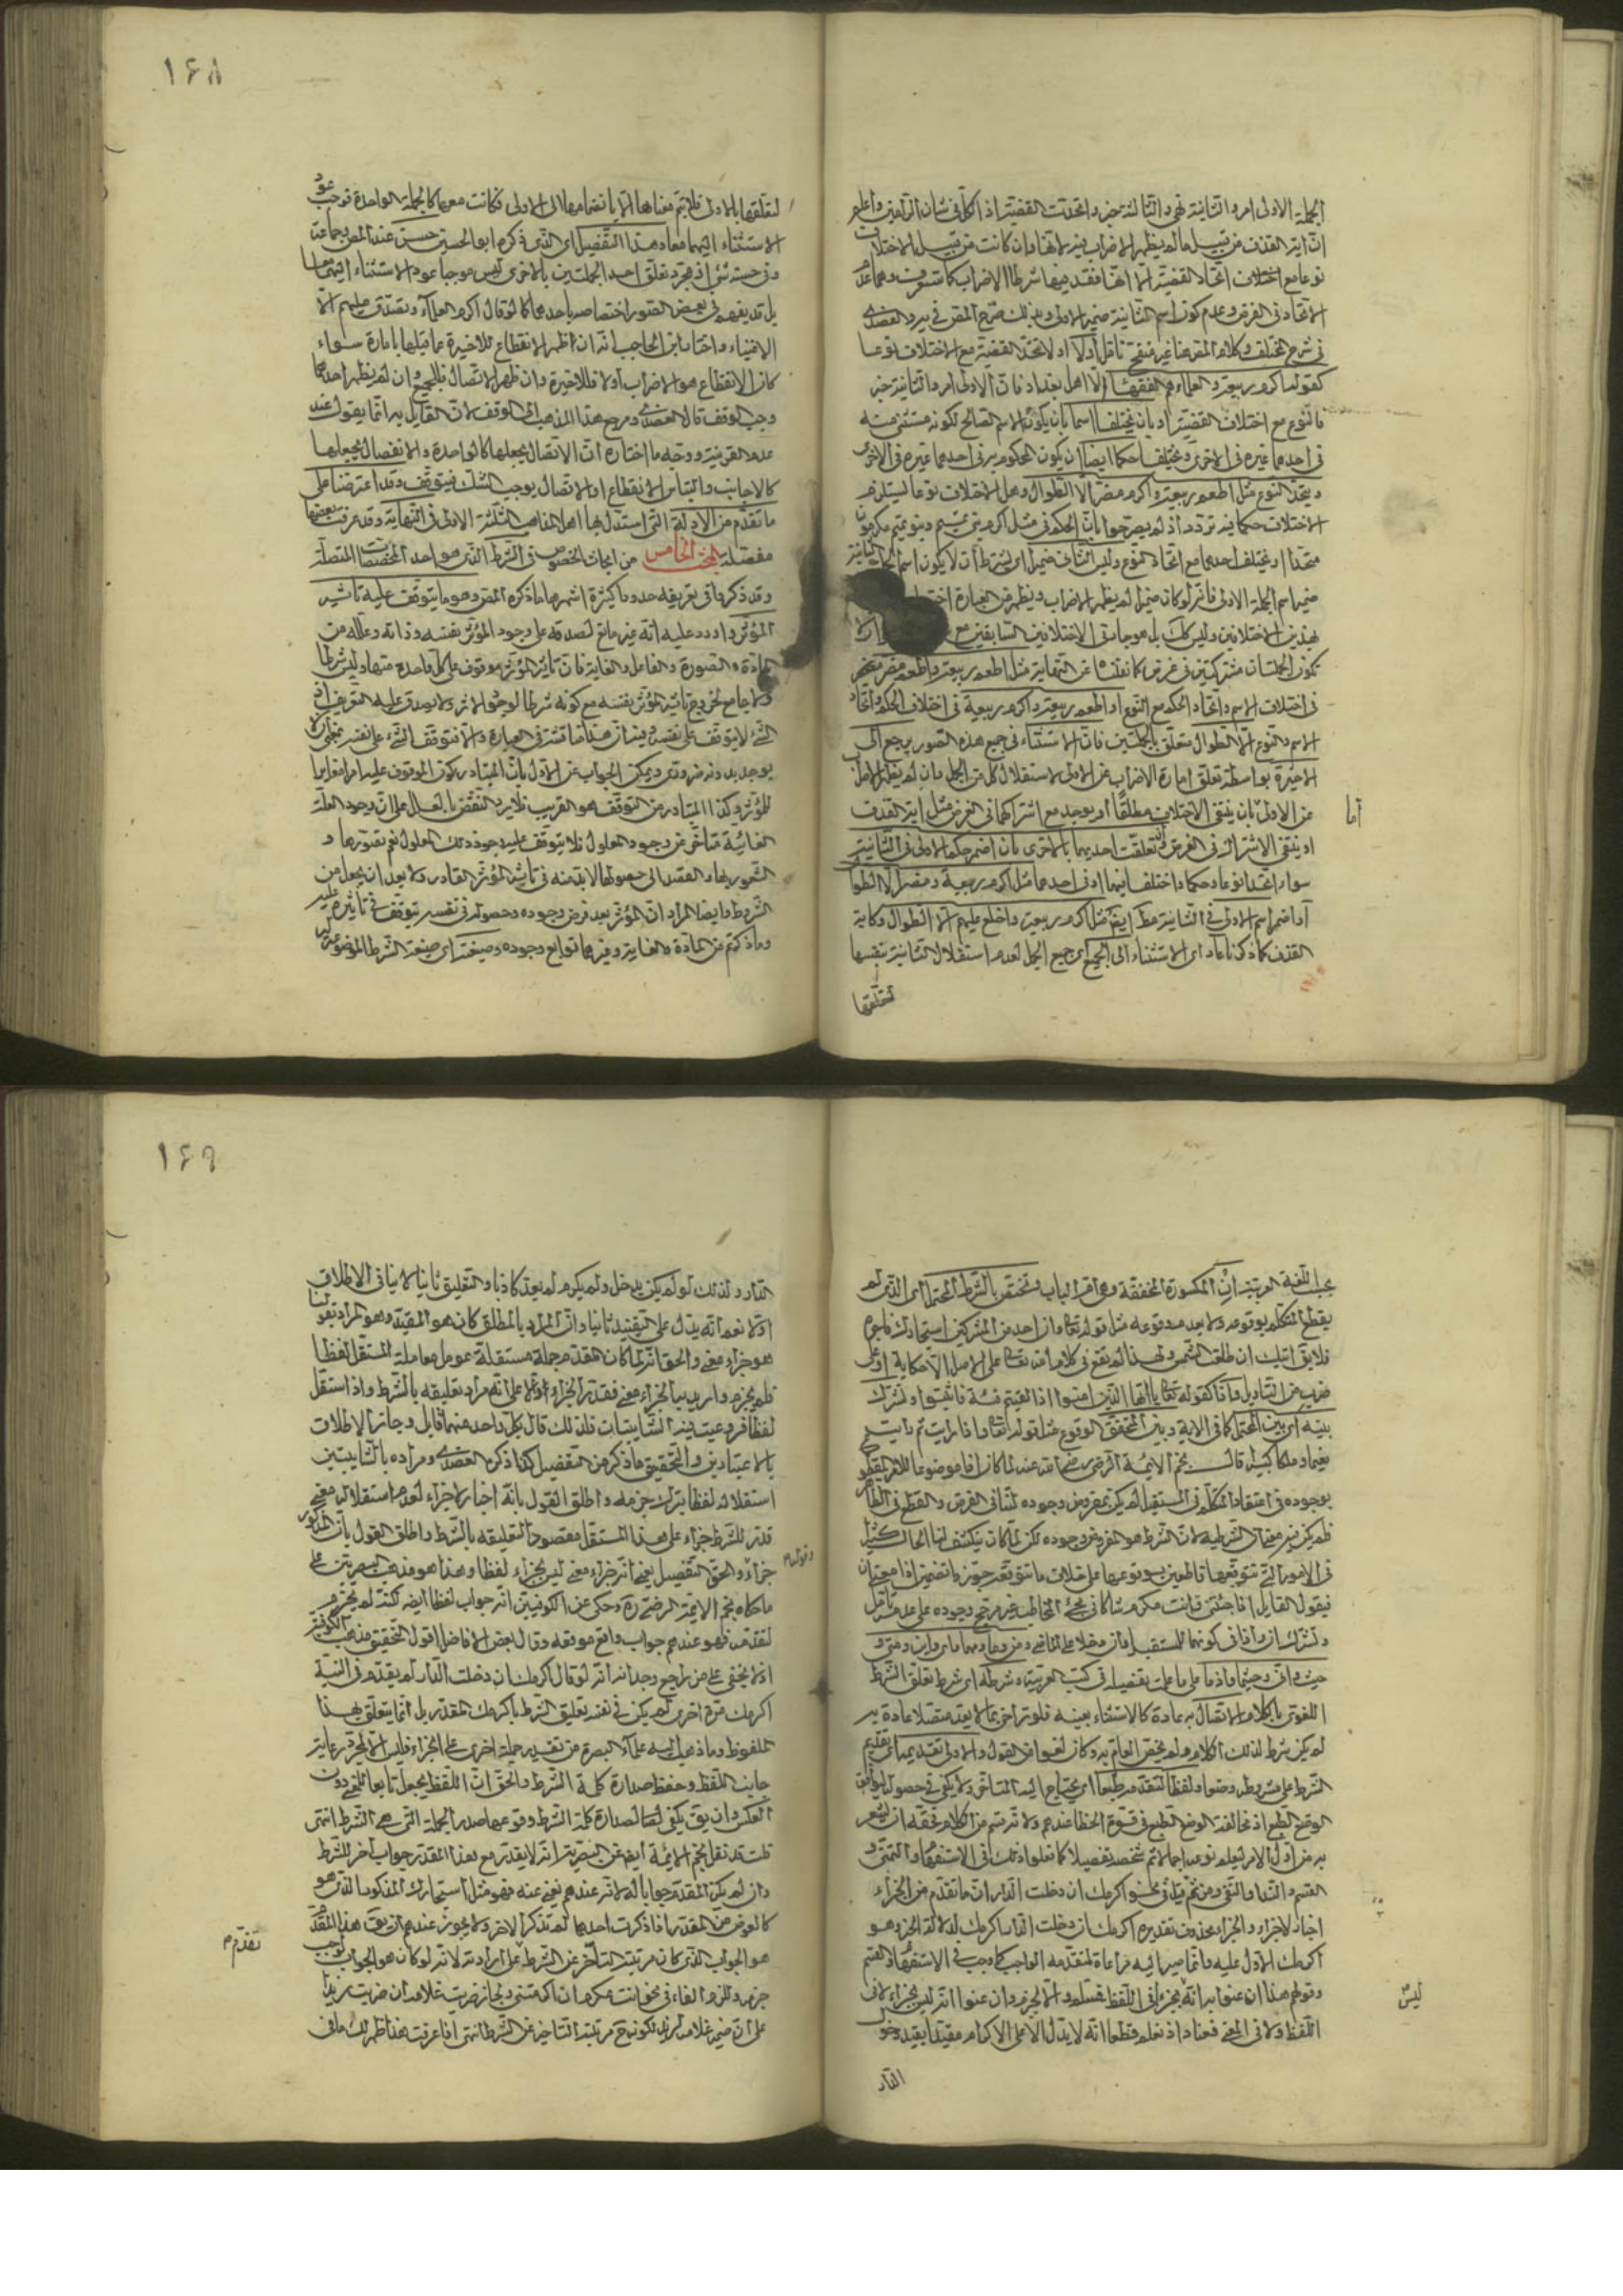 ١۶٨
الجملة الاولى امر والثانية نهى والثالثة خبر واتحدت القضية اذ الكل فى شان الرامين واعلم
ان اية القذف من قبيل ما لم يظهر الاضراب فيه لانها وان كانت من قبيل الاختلاف
نوعا مع اتحاد القضية الا انها فقد فيها شرط الاضراب
الاتحاد فى الغرض وعدم كون اسم الثانية ضمير الاولى وبذلك صرح المصنف
فى شرح المختلف وكلام المصنف هنا غير منقح او لا تتحد القضية مع الاختلاف نوعا
كقولنا اكرم ربيعة والعلماء هم الفقهاء الا اهل بغداد فان الاولى امر والثانية خبر
فالنوع مع اختلاف القضية او بان يختلفا اسما بان يكون الاسم الصالح لكونه مستثنى منه
فى احدهما غيره فى الاخرى ويختلفا حكما ايضا ان يكون المحكوم به فى احدهما غيره فى الاخرى
ويتحد النوع مثل اطعم ربيعة واكرم مضر الا الطوال وهل الاختلاف نوعا يستلزم
الاختلاف حكما فيه تردد اذ لم يصرحوا بان الحكم فى مثل اكرم بنى تميم وبنو تميم مكرمون
متحد او يختلف احدهما مع اتحاد النوع وليس الثانى ضميرا اى بشرط ان لا يكون اسم الجملة الثانية
ضمير اسم الجملة الاولى فانه لو كان ضميرا لم يظهر الاضراب ويظهر من العبارة
بهذين الاختلافين وليس كذلك بل هو جار فى الاختلافين السابقين مع
تكون الجملتان مشتركتين فى غرض كما نقلناه عن النهاية مثل اطعم ربيعة واطعم مضر
فى اختلاف الاسم واتحاد الحكم مع النوع او اطعم ربيعة واكرم ربيعة فى اختلاف الحكم واتحاد
الاسم والنوع الا الطوال متعلق بالجملتين فان الاستثناء فى جميع هذه الصور يرجع الى
الاخيرة بواسطة تعلق امارة الاضراب عن الاولى لاستقلال كل من الجمل وان لم يظهر الاضراب
عن الاولى بان ينتفى الاختلاف مطلقا او يوجد مع اشتراكهما فى الغرض مثل اية القذف
اما
او ينتفى الاشتراك فى الغرض ان تعلقت احديهما بالاخرى بان اضمر حكم الاولى فى الثانية
سواء اتحدا نوعا وحكما واختلفا فيهما او فى احدهما مثل اكرم ربيعة ومضر الا الطوال
او اضمر اسم الاولى فى الثانية مثل اكرم ربيعة واخلع عليهم الا الطوال وكاية
القذف كما ذكرنا عاد اى الاستثناء الى الجميع اى جميع الجمل لعدم استقلال الثانية بنفسها
لتعلقها
لتعلقها بالاولى فلا يتم معناها الا بانضمامها الى الاولى فكانت معها كالجملة الواحدة فوجب عود
الاستثناء اليهما معا وهذا التفصيل اى الذى ذكره ابو الحسين حسن عند المصنف وجماعة
وفى حسنه شئ اذ مجرد تعلق احد الجملتين بالاخرى ليس موجبا عود الاستثناء اليهما معا
بل قد يفهم فى بعض الصور اختصاصه باحدهما كما لو قال اكرم العلماء وتصدق عليهم الا
الاغنياء واختار ابن الحاجب انه ان ظهر الانقطاع للاخيرة عما قبلها بامارة سواء
كان الانقطاع هو الاضراب او لا فللاخيرة وان ظهر الاتصال فللجميع وان لم يظهر احدهما
وجب الوقف قال العضدى ومرجع هذا المذهب الى الوقف لان القايل به انما يقول عند
عدم القرينة ووجه ما اختاره ان الاتصال يجعلها كالواحدة والانفصال يجعلها
كالاجانب والتباس الانقطاع او الاتصال يوجب الشك فيتوقف وقد اعترضنا على
ما تقدم من الادلة التى استدل بها اهل المذاهب الثلثة الاولى فى النهاية وقد عرفت بعضها
مفصلة البحث الخامس من ابحاث الخصوص فى الشرط الذى هو احد المخصصات المتصلة
وقد ذكر فى تعريفه حدودا كثيرة اشهرها ما ذكره المصنف وهو ما يتوقف عليه تاثير
المؤثر واورد عليه انه غير مانع لصدقه على وجود المؤثر بنفسه وذاته وعلله من
المادة والصورة والفاعل والغاية فان تاثير المؤثر موقوف على كل واحدة منها وليس شرطا
ولا جامع لخروج تاثير المؤثر بنفسه مع كونه شرطا لوجود الاثر ولا يصدق عليه التعريف اذ
الشئ لا يتوقف على نفسه
يوجد بدونه ضرورى ويمكن الجواب عن الاول بان المتبادر كون الموقوف عليه امرا مغايرا
للمؤثر وكذا المتبادر من التوقف هو القريب فلا يرد النقض بالعلل على ان وجود العلة
الغائية متاخر عن وجود المعلول فلا يتوقف عليه وجود ذلك المعلول نعم تصورها و
الشعور بها والقصد الى حصولها لا بد منه فى تاثير المؤثر القادر ولا يعد ان يجعل من
الشروط وايضا المراد ان المؤثر بعد فرض وجوده وحصوله فى نفسه يتوقف فى تاثيره عليه
وما ذكرتم من المادة والغاية وغيرهما توابع وجوده وصيغته اى صيغة الشرط الموضوعة له
١۶٩
بحسب اللغة العربية ان المكسورة المخففة وهى ام الباب وتختص بالشرط المحتمل اى الذى لم
يقطع المتكلم بوقوعه ولا بعدم وقوعه مثل قوله تعالى وان احد من المشركين استجارك فاجره
فلا يقال اتيك ان طلعت الشمس ولهذا لم تقع فى كلام الله تعالى على الاصل الا حكاية او على
ضرب من التاويل واذا كقوله تعالى يا ايها الذين امنوا اذا لقيتم فئة فاثبتوا وتشترك
بينه اى بين المحتمل كما فى الاية وبين المحقق الوقوع مثل قوله تعالى واذا رايت ثم رايت
نعيما وملكا كبيرا قال نجم الائمة الرضى رضى الله عنه لما كان اذا موضوعا للامر المقطوع
بوجوده فى اعتقاد المتكلم فى المستقبل لم يكن لمفروض وجوده لتنافى الفرض والقطع فى الظاهر
فلم يكن فيه معنى ان الشرطية لان الشرط هو المفروض وجوده لكن لما كان ينكشف لنا الحال كثيرا
فى الامور التى نتوقعها قاطعين بوقوعها على خلاف ما نتوقعه جوز تضمين اذا معنى ان
فيقول القايل اذا جئتنى فانت مكرم شاكا فى مجئ المخاطب غير مرجح وجوده على عدمه
وتشترك ان واذا فى كونهما للمستقبل وان دخلا على الماضى ومن وما ومهما واى واين ومتى و
حيث وانى وحيثما واذما على ما علم تفصيله فى كتب العربية وشرطه اى شرط تعلق الشرط
اللغوى بالكلام الاتصال به عادة كالاستثناء بعينه فلو تراخى بما لا يعد متصلا عادة به
لم يكن شرطا لذلك الكلام ولم يخص العام به وكان لغوا فى القول والاولى تقديمه اى تقديم
الشرط على مشروطه وضعا ولفظا لتقدمه طبعا اى يحتاج اليه المتاخر ولا يكفى فى حصوله ليوافق
الوضع الطبع اذ مخالفة الوضع الطبع فى قوة الخطا عندهم ولانه قسم من الكلام فحقه ان يشعر
به من اول الامر ليعلم نوعه اجمالا ثم شخصه تفصيلا كما فعلوا ذلك فى الاستفهام والتمنى و
القسم والندا والنفى ومن ثم قيل فى نحو اكرمك ان دخلت الدار ان ما تقدم من الجزاء
اخبار لا جزاء والجزاء محذوف تقديره اكرمك ان دخلت الدار اكرمك لدلالة الخبر وهو
اكرمك الاول عليه وانما صير اليه مراعاة لتقدمه الواجب كما وجب فى الاستفهام والقسم
وقولهم هذا ان عنوا به انه ليس بجزاء فى اللفظ فمسلم والا لجزم وان عنوا انه ليس بجزاء لا فى
ليس
اللفظ ولا فى المعنى فعناد اذ نعلم قطعا انه لا يدل الا على الاكرام مقيدا بقيد دخول
الدار
الدار ولذلك لو لم يكن يدخل ولم يكرم لم يعد كاذبا والتعليق ثانيا لا ينافى الاطلاق
اولا نعم انه يدل على التقييد ثانيا وان المراد بالمطلق كان هو المقيد وهو المراد بقولنا
هو جزاء معنى والحق انه لما كان المقدم جملة مستقلة عومل معاملة المستقل لفظا
فلم يجزم واريد بها الجزاء معنى فقدر الجزاء اولا على انه مراد تعليقه بالشرط واذ استقل
لفظا فروعيت فيه الشايبتان فلذلك قال بكل واحد منهما قايل وجاز الاطلاق
بالاعتبارين والتحقيق ما ذكره من التفصيل كذا ذكره العضدى ومراده بالشايبتين
استقلاله لفظا بترك جزمه واطلق القول بانه اخبار لا جزاء لعدم استقلاله معنى
قدر للشرط جزاء على هذا المستقل مقصودا تعليقه بالشرط واطلق القول بان المذكور
وقولهم
جزاء والحق التفصيل يعنى انه جزاء معنى ليس بجزاء لفظا وهذا هو مذهب البصريين على
ما حكاه نجم الائمة الرضى ره وحكى عن الكوفيين انه جواب لفظا ايضا لكنه لم يجزم
لتقدمه فهو عندهم جواب واقع موقعه وقال بعض الافاضل اقول التحقيق مذهب الكوفية
اذ لا يخفى على من راجع وجدانه انه لو قال اكرمك ان دخلت الدار لم يقدر فى النية
اكرمك مرة اخرى لم يكن فى نفسه تعليق الشرط باكرمك المقدر بل انما يتعلق بهذا
الملفوظ وما ذهب اليه علماء البصرة من تقدير جملة اخرى على الجزاء فليس الا لمجرد رعاية
جانب اللفظ وحفظ صدارة كلمة الشرط والحق ان اللفظ يجعل تابعا للمعنى دون
العكس وان يق يكفى لصدارة كلمة الشرط وقوعها صدر الجملة التى هى الشرط انتهى
قلت قد نقل نجم الائمة ايضا عن البصرية انه لا يقدر مع هذا المقدم جواب اخر للشرط
وان لم يكن المقدم جوابا له لانه عندهم يغنى عنه فهو مثل استجارك المذكور الذى هو
كالعوض من المقدر اذا ذكرت احدهما لم تذكر الاخر ولا يجوز عندهم ان يق هذا المقدم
تقدم
هو الجواب الذى كان مرتبته التاخر عن الشرط على ارادته لانه لو كان هو الجواب لوجب
جزمه وللزم الفاء فى نحو انت مكرم ان اكرمتنى ولجاز ضربت غلامه ان ضربت زيدا
على ان ضمير غلامه لزيد لكونه مرتبته التاخير عن الشرط انتهى اذا عرفت هذا ظهر لك ما فى